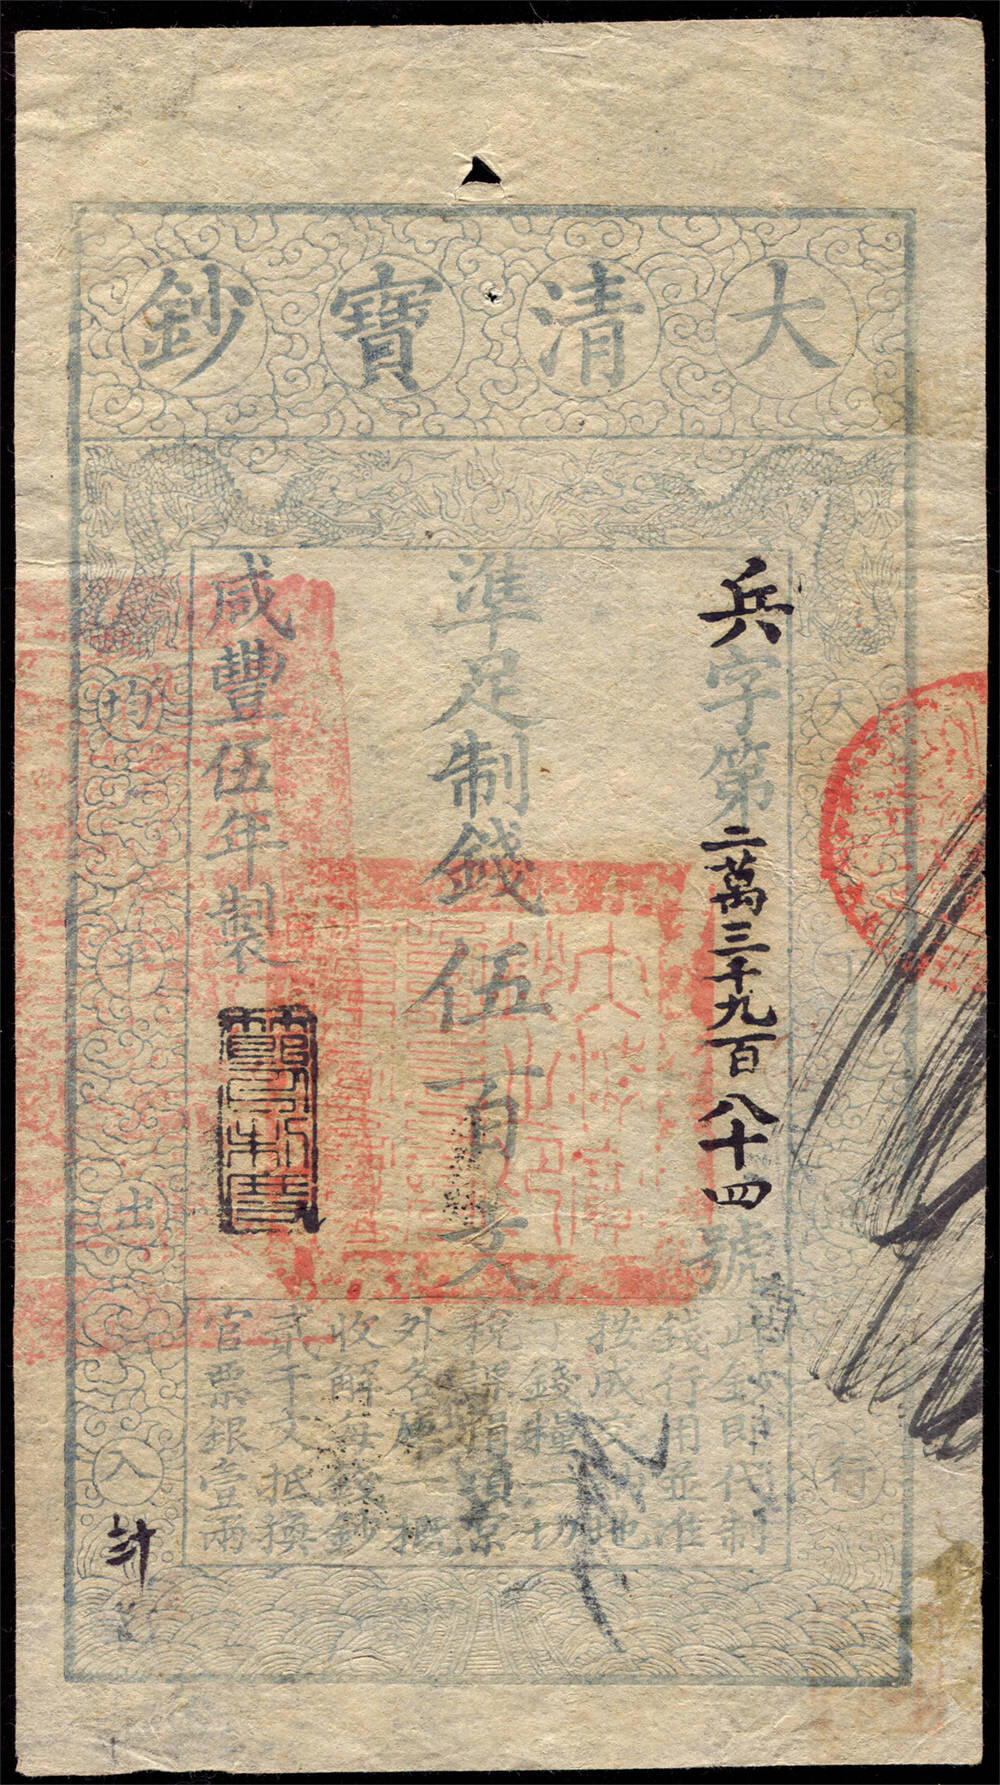 大清寶鈔
兵字第二萬三千九百八十四號
準足制錢伍百文
咸豐伍年製
天下
行
均平出入
此鈔即代制
錢行用並准
按成交納地
丁錢糧一切
稅課捐項京
外各庫一概
收解每錢鈔
貳千文抵換
官票銀壹兩